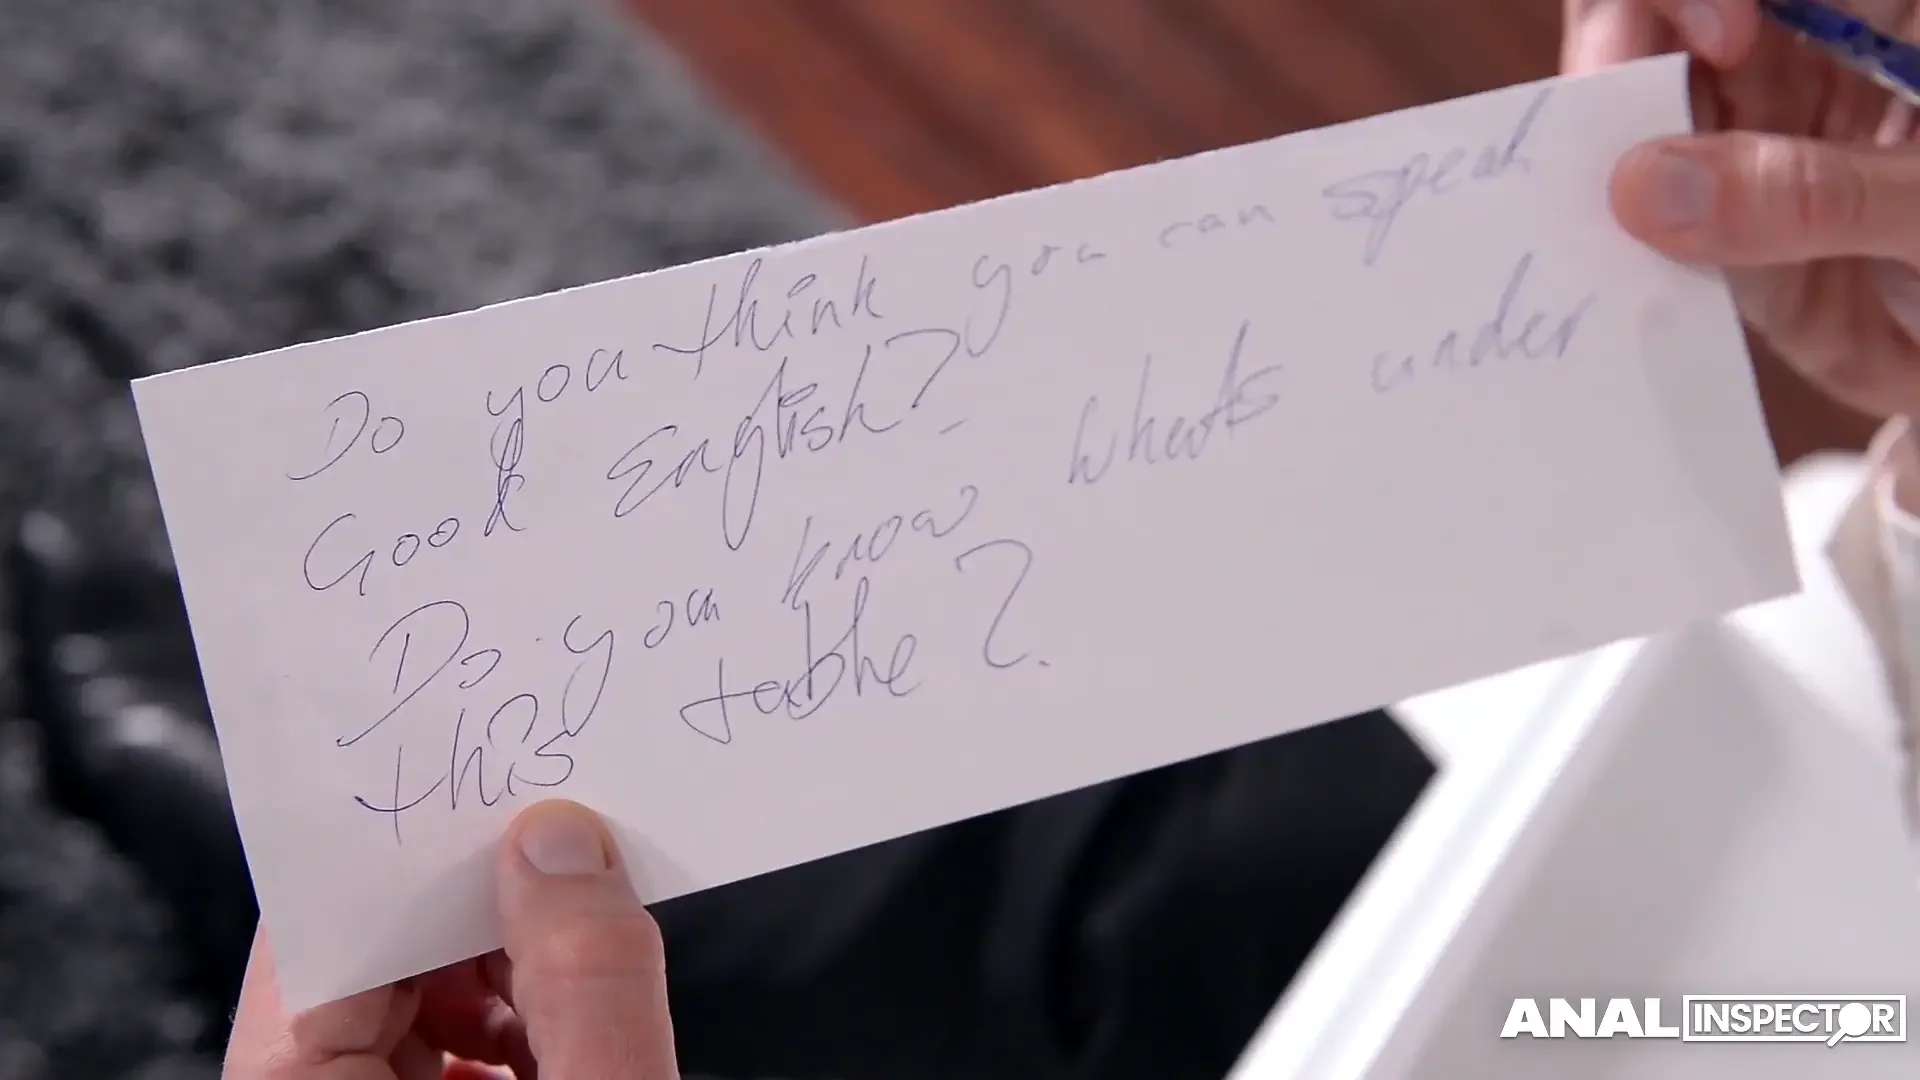 Do you think you can speak
Good English?
Do you know whats under
this table?
ANAL INSPECTOR